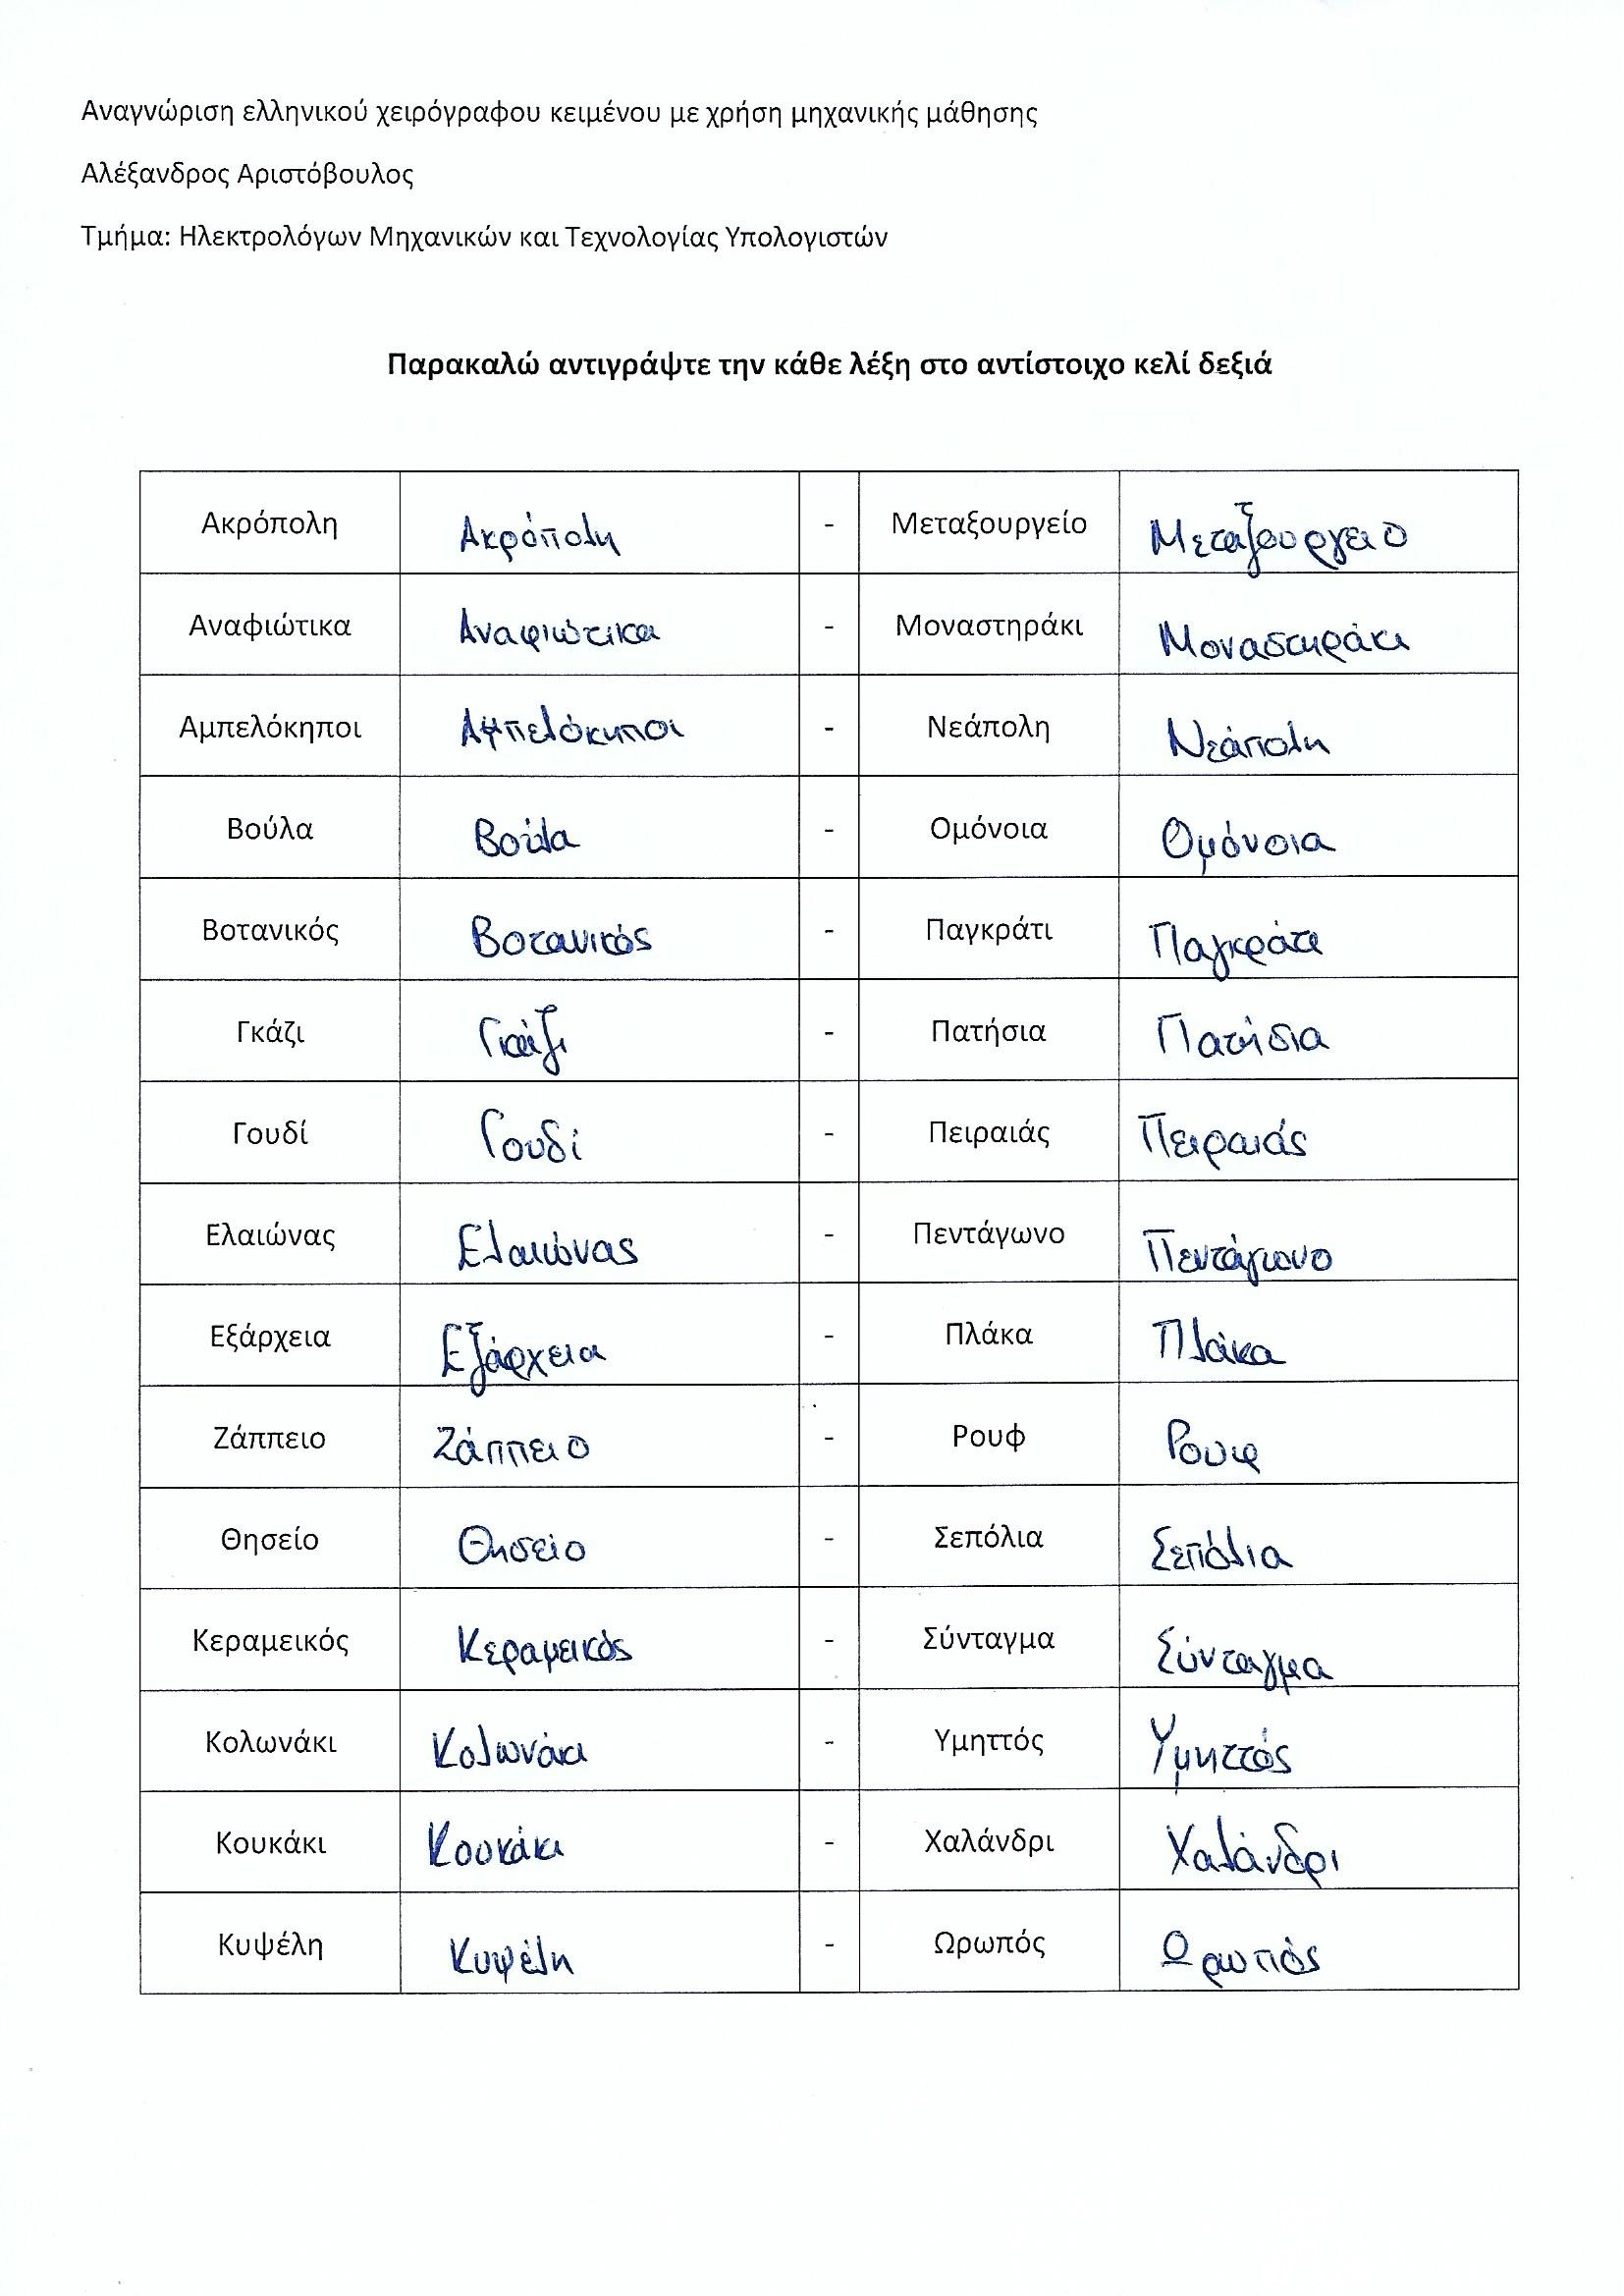 Αναγνώριση ελληνικού χειρόγραφου κειμένου με χρήση μηχανικής μάθησης
Αλέξανδρος Αριστόβουλος
Τμήμα: Ηλεκτρολόγων Μηχανικών και Τεχνολογίας Υπολογιστών
Παρακαλώ αντιγράψτε την κάθε λέξη στο αντίστοιχο κελί δεξιά
Ακρόπολη Ακρόπολη - Μεταξουργείο Μεταξουργειο
Αναφιώτικα Αναφιώτικα - Μοναστηράκι Μοναστηράκι
Αμπελόκηποι Αμπελόκηποι - Νεάπολη Νεάπολη
Βούλα Βούλα - Ομόνοια Ομόνοια
Βοτανικός Βοτανικός - Παγκράτι Παγκράτι
Γκάζι Γκάζι - Πατήσια Πατήσια
Γουδί Γουδί - Πειραιάς Πειραιάς
Ελαιώνας Ελαιώνας - Πεντάγωνο Πεντάγωνο
Εξάρχεια Εξάρχεια - Πλάκα Πλάκα
Ζάππειο Ζάππειο - Ρουφ Ρουφ
Θησείο Θησείο - Σεπόλια Σεπόλια
Κεραμεικός Κεραμεικός - Σύνταγμα Σύνταγμα
Κολωνάκι Κολωνάκι - Υμηττός Υμηττός
Κουκάκι Κουκάκι - Χαλάνδρι Χαλάνδρι
Κυψέλη Κυψέλη - Ωρωπός Ωρωπός